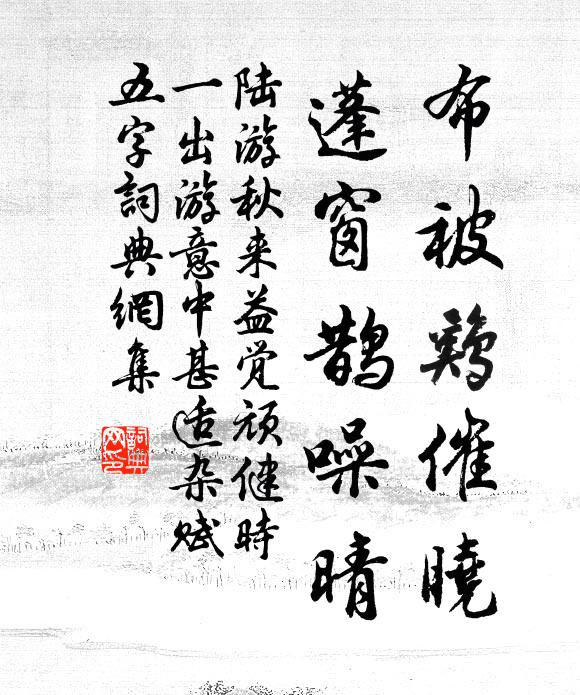 布被鷄催曉
蓬窗鹊噪晴
陆游秋来益觉顽健时
一出游意中甚适杂赋
五字詞典網集
詞典网